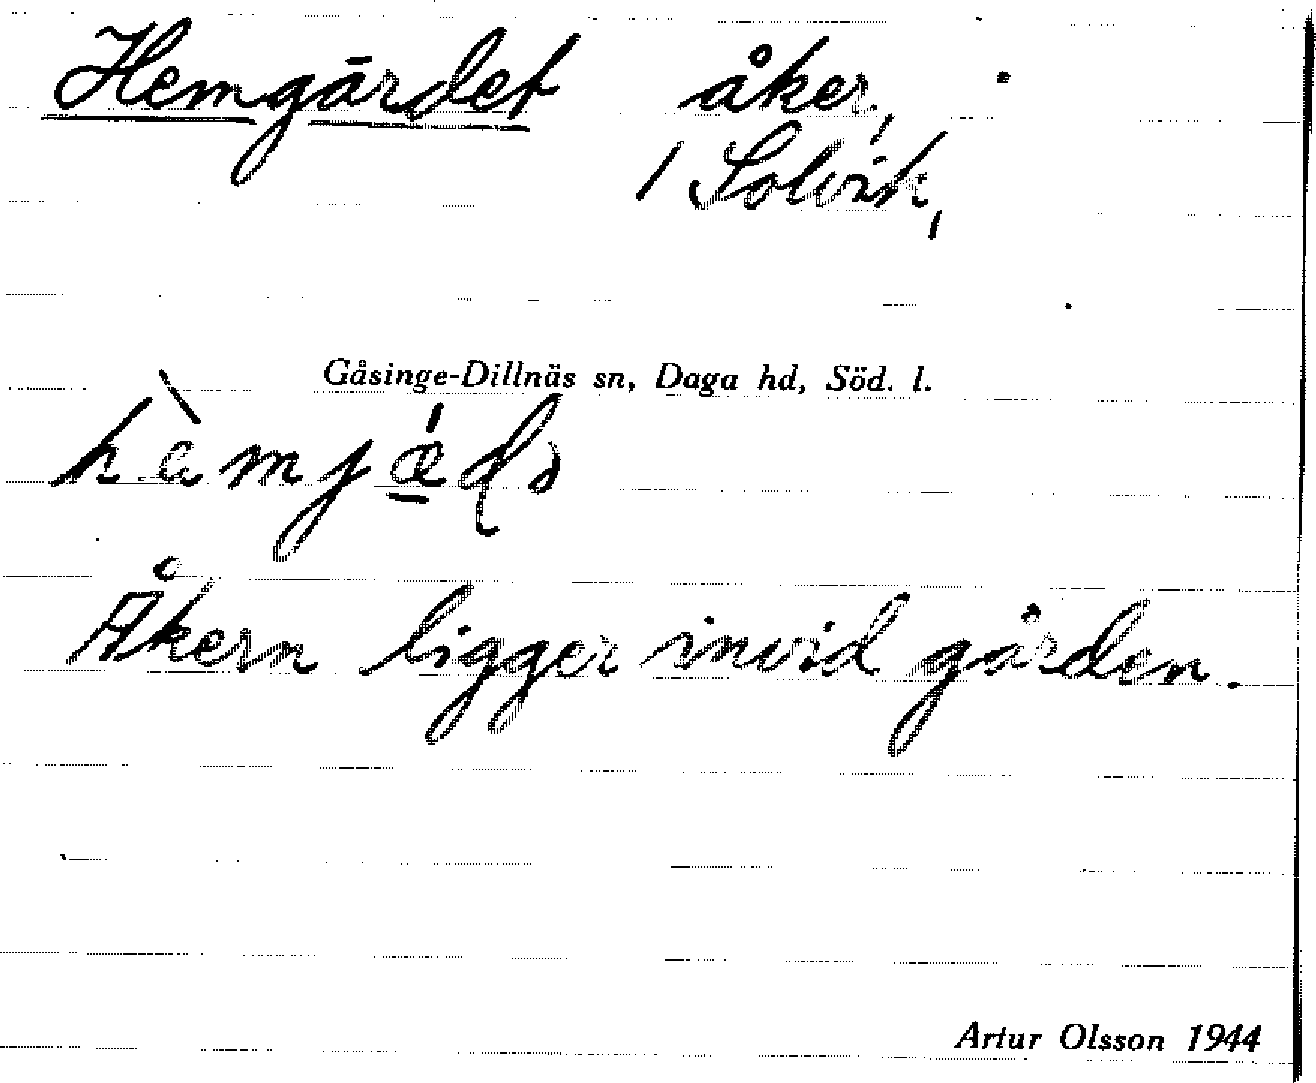 Hemgärdet åker,
/ Solvik,
Gåsinge-Dillnäs sn, Daga hd, Söd. l.
Åkern ligger invid gården.
Artur Olsson 1944